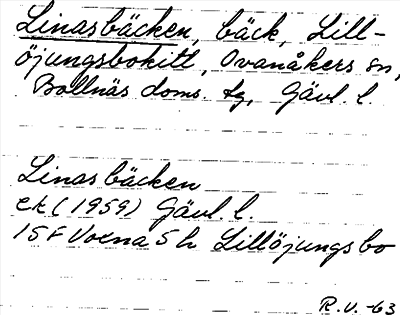 Linasbäcken, bäck, Lill-
öjungsbo kitt, Ovanåkers sn,
Bollnäs doms. tg, Gävl. l.
Linasbäcken
ek (1959) Gävl. l.
15F Voxna 5h Lillöjungsbo
R.V. -63